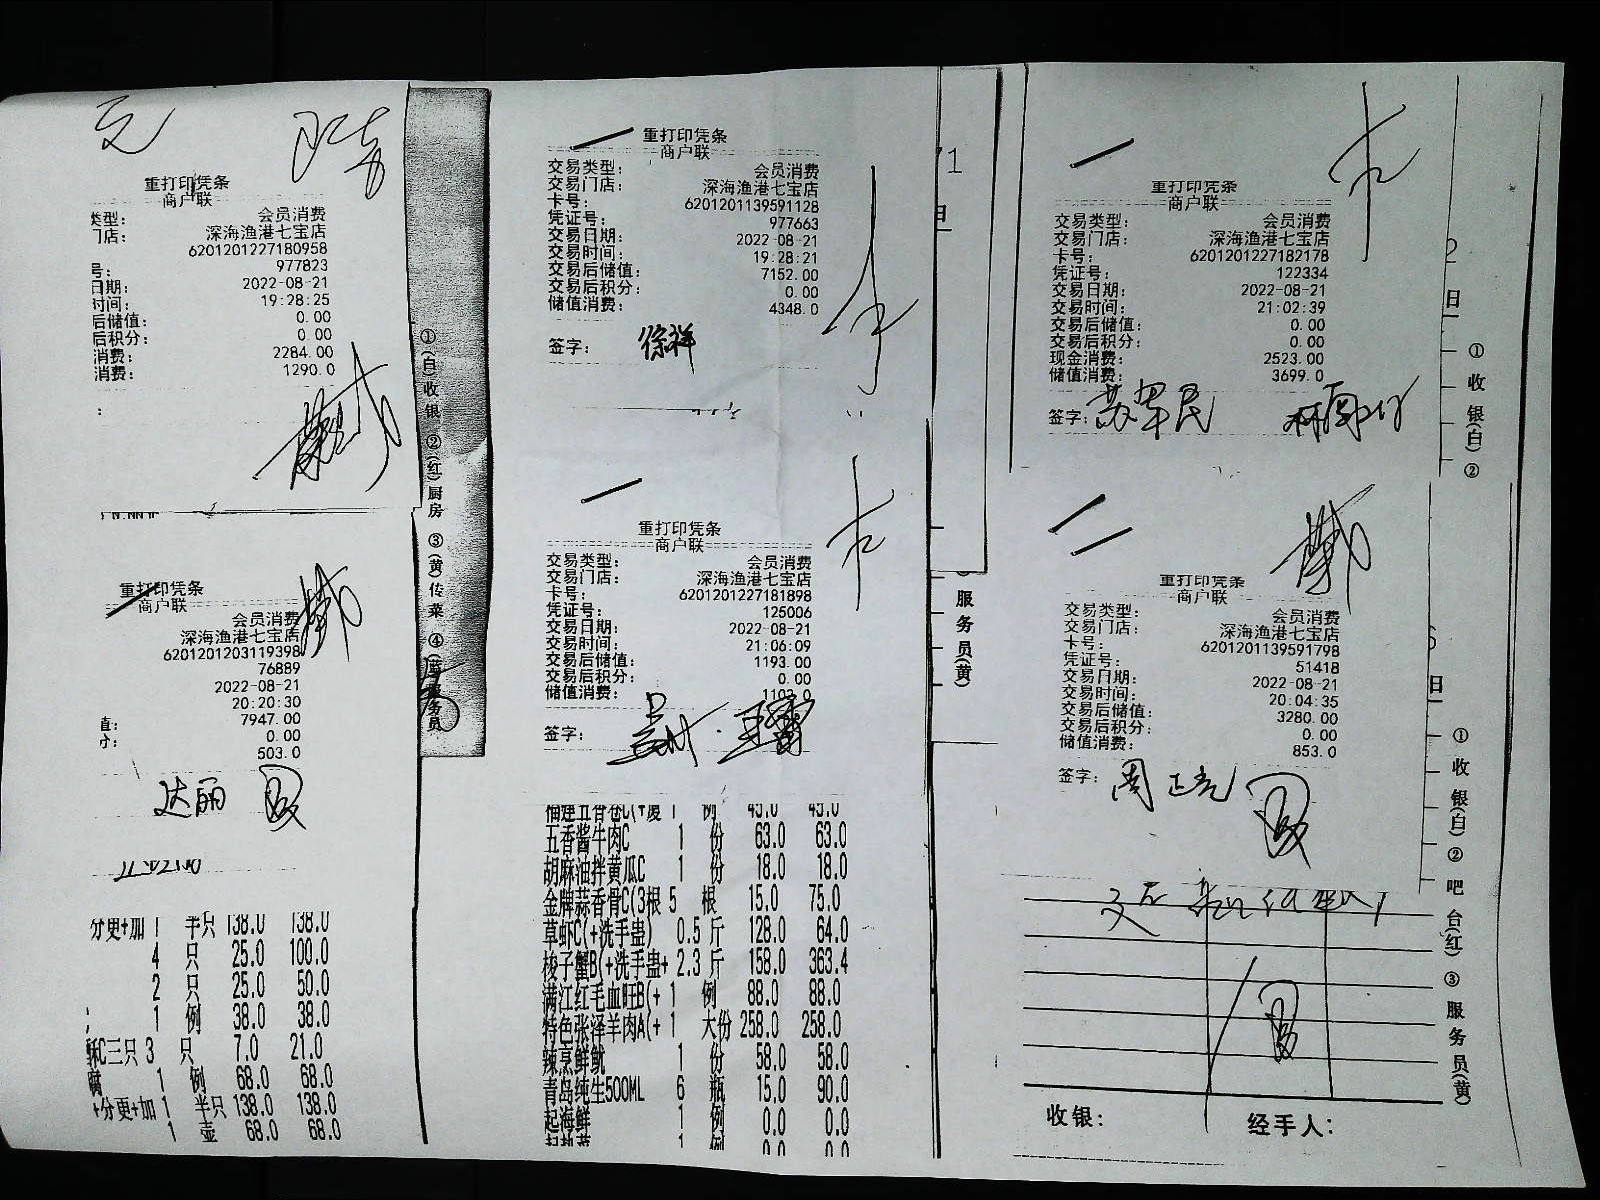 重打印凭条
商户联
类型: 会员消费
门店: 深海渔港七宝店
6201201227180958
号: 977823
日期: 2022-08-21
时间: 19:28:25
后储值: 0.00
后积分: 0.00
消费: 2284.00
消费: 1290.0
重打印凭条
商户联
会员消费
深海渔港七宝店
6201201203119398
76889
2022-08-21
20:20:30
值: 7947.00
分: 0.00
503.0
达丽
分更+加 1 半只 138.0 138.0
4 只 25.0 100.0
2 只 25.0 50.0
1 例 38.0 38.0
酥C三只 3 只 7.0 21.0
腐 1 例 68.0 68.0
+分更+加 1 半只 138.0 138.0
1 壶 68.0 68.0
①(白)收银 ②(红)厨房 ③(黄)传菜 ④ 服务员
重打印凭条
商户联
交易类型: 会员消费
交易门店: 深海渔港七宝店
卡号: 6201201139591128
凭证号: 977663
交易日期: 2022-08-21
交易时间: 19:28:21
交易后储值: 7152.00
交易后积分: 0.00
储值消费: 4348.0
签字: 徐祥
重打印凭条
商户联
交易类型: 会员消费
交易门店: 深海渔港七宝店
卡号: 6201201227181898
凭证号: 125006
交易日期: 2022-08-21
交易时间: 21:06:09
交易后储值: 1193.00
交易后积分: 0.00
储值消费:
签字:
福建五香卷C(+厦 1 例 45.0 45.0
五香酱牛肉C 1 份 63.0 63.0
胡麻油拌黄瓜C 1 份 18.0 18.0
金牌蒜香骨C(3根 5 根 15.0 75.0
草虾C(+洗手盅) 0.5 斤 128.0 64.0
梭子蟹B(+洗手盅+ 2.3 斤 158.0 363.4
满江红毛血旺B(+ 1 例 88.0 88.0
特色张泽羊肉A(+ 1 大份 258.0 258.0
辣烹鲜鱿 1 份 58.0 58.0
青岛纯生500ML 6 瓶 15.0 90.0
起海鲜 1 例 0.0 0.0
1 例 0.0 0.0
71
日
服务员(黄)
重打印凭条
商户联
交易类型: 会员消费
交易门店: 深海渔港七宝店
卡号: 6201201227182178
凭证号: 122334
交易日期: 2022-08-21
交易时间: 21:02:39
交易后储值: 0.00
交易后积分: 0.00
现金消费: 2523.00
储值消费: 3699.0
签字:
2
日
①收银(白) ②
重打印凭条
商户联
交易类型: 会员消费
交易门店: 深海渔港七宝店
卡号: 6201201139591798
凭证号: 51418
交易日期: 2022-08-21
交易时间: 20:04:35
交易后储值: 3280.00
交易后积分: 0.00
储值消费: 853.0
签字:
日
①收银(白) ②吧台(红) ③服务员(黄)
收银: 经手人: